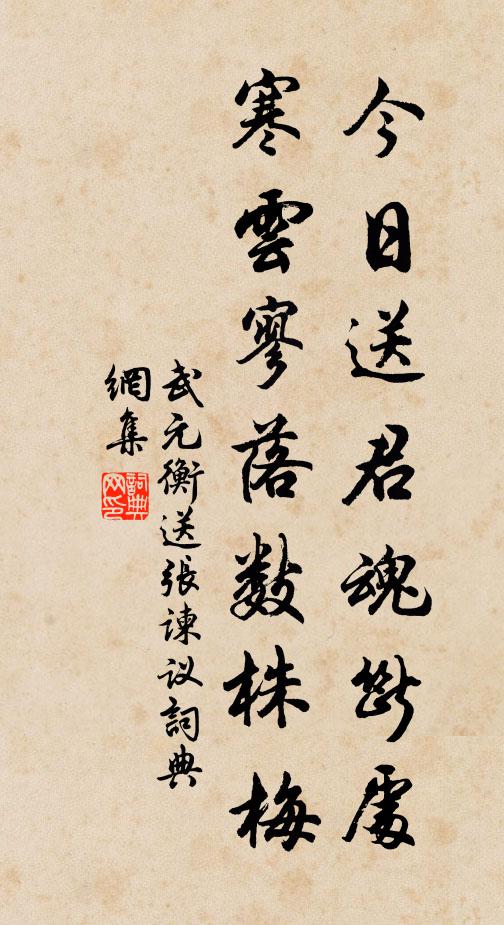 今日送君魂斷處
寒雲寥落數株梅
武元衡送張諫议詞典
網集
詞典网印